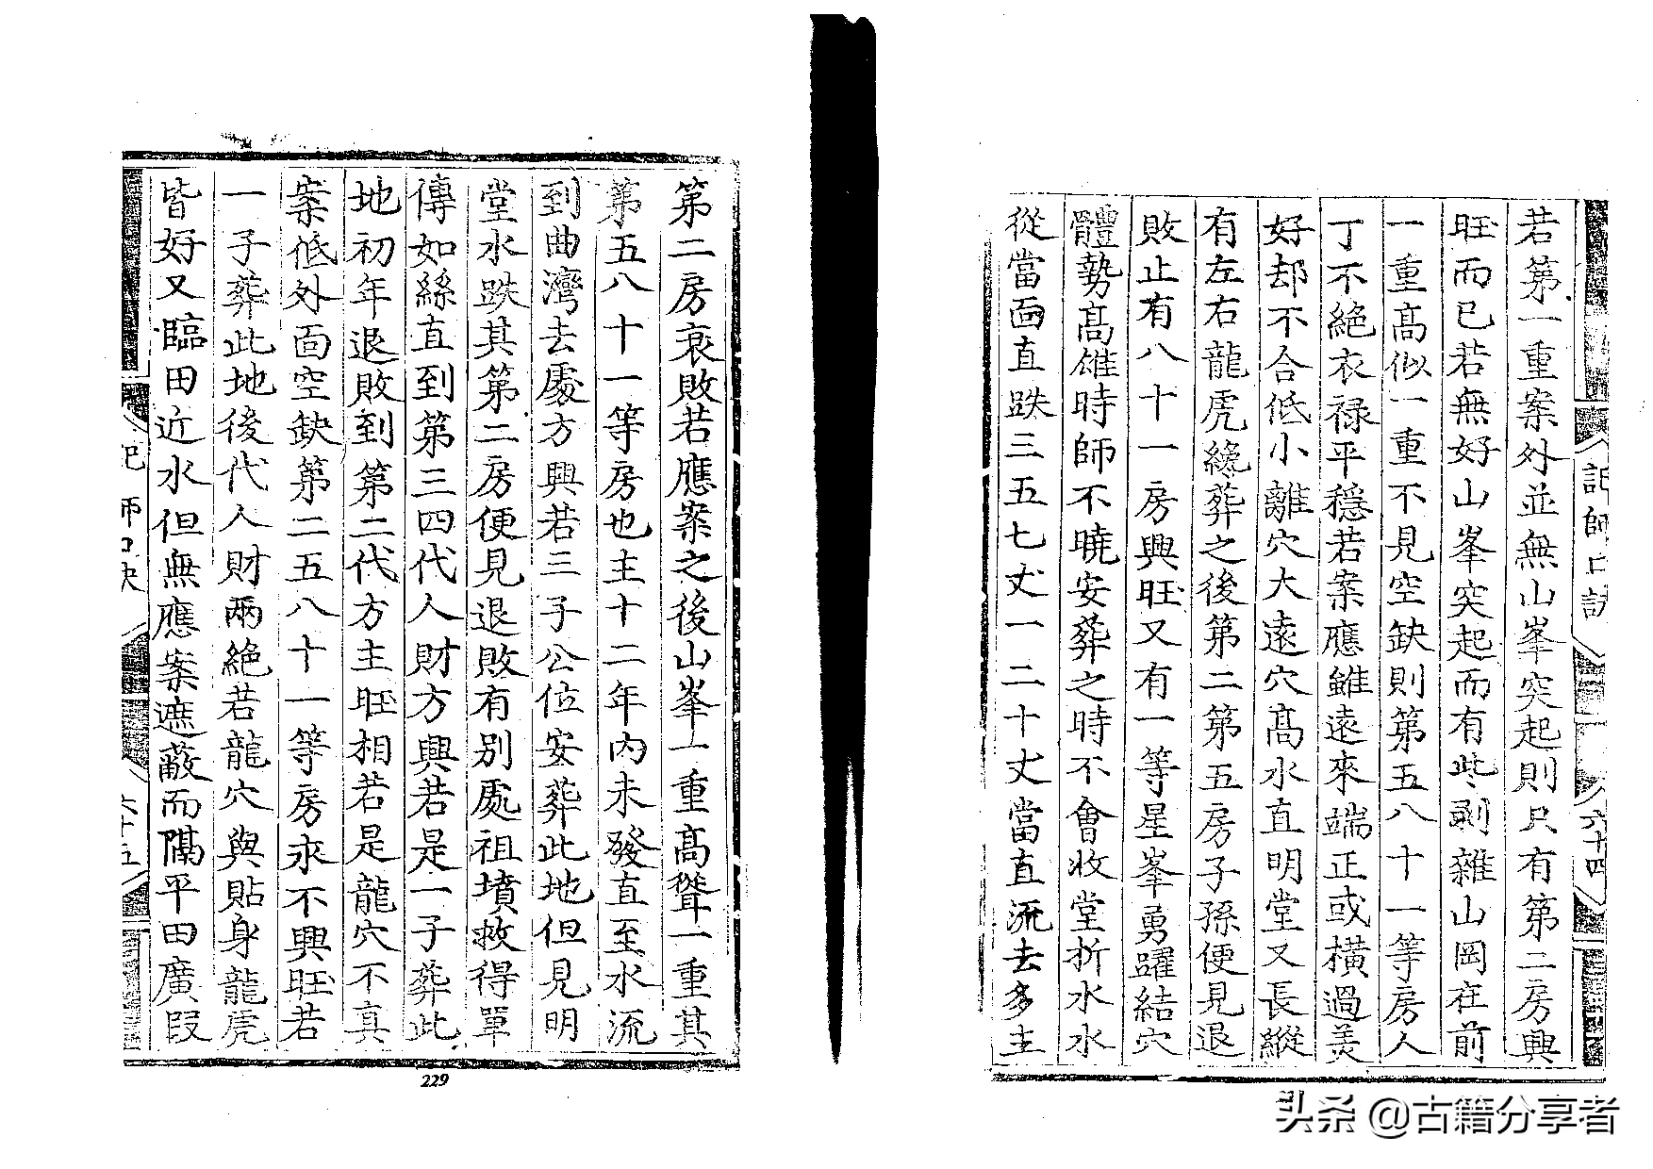 若第一重案外並無山峯突起則只有第二房興
旺而已若無好山峯突起而有此剥雜山岡在前
一重高似一重不見空缺則第五八十一等房人
丁不絕衣祿平穩若案應雖遠來端正或橫過美
好却不合低小離穴大遠穴高水直明堂又長縱
有左右龍虎纔葬之後第二第五房子孫便見退
敗止有八十一房興旺又有一等星峯勇躍結穴
體勢高雄時師不曉安葬之時不會收堂折水水
從當面直跌三五七丈一二十丈當直流去多主
師口訣
六十四
第二房衰敗若應案之後山峯一重高聳一重其
第五八十一等房也主十二年內未發直至水流
到曲灣去處方興若三子公位安葬此地但見明
堂水跌其第二房便見退敗有別處祖墳救得單
傳如絲直到第三四代人財方興若是一子葬此
地初年退敗到第二代方主旺相若是龍穴不真
案低外面空缺第二五八十一等房永不興旺若
一子葬此地後代人財兩絕若龍穴與貼身龍虎
皆好又臨田近水但無應案遮蔽而隔平田廣叚
師口訣
六十五
229
头条 @古籍分享者